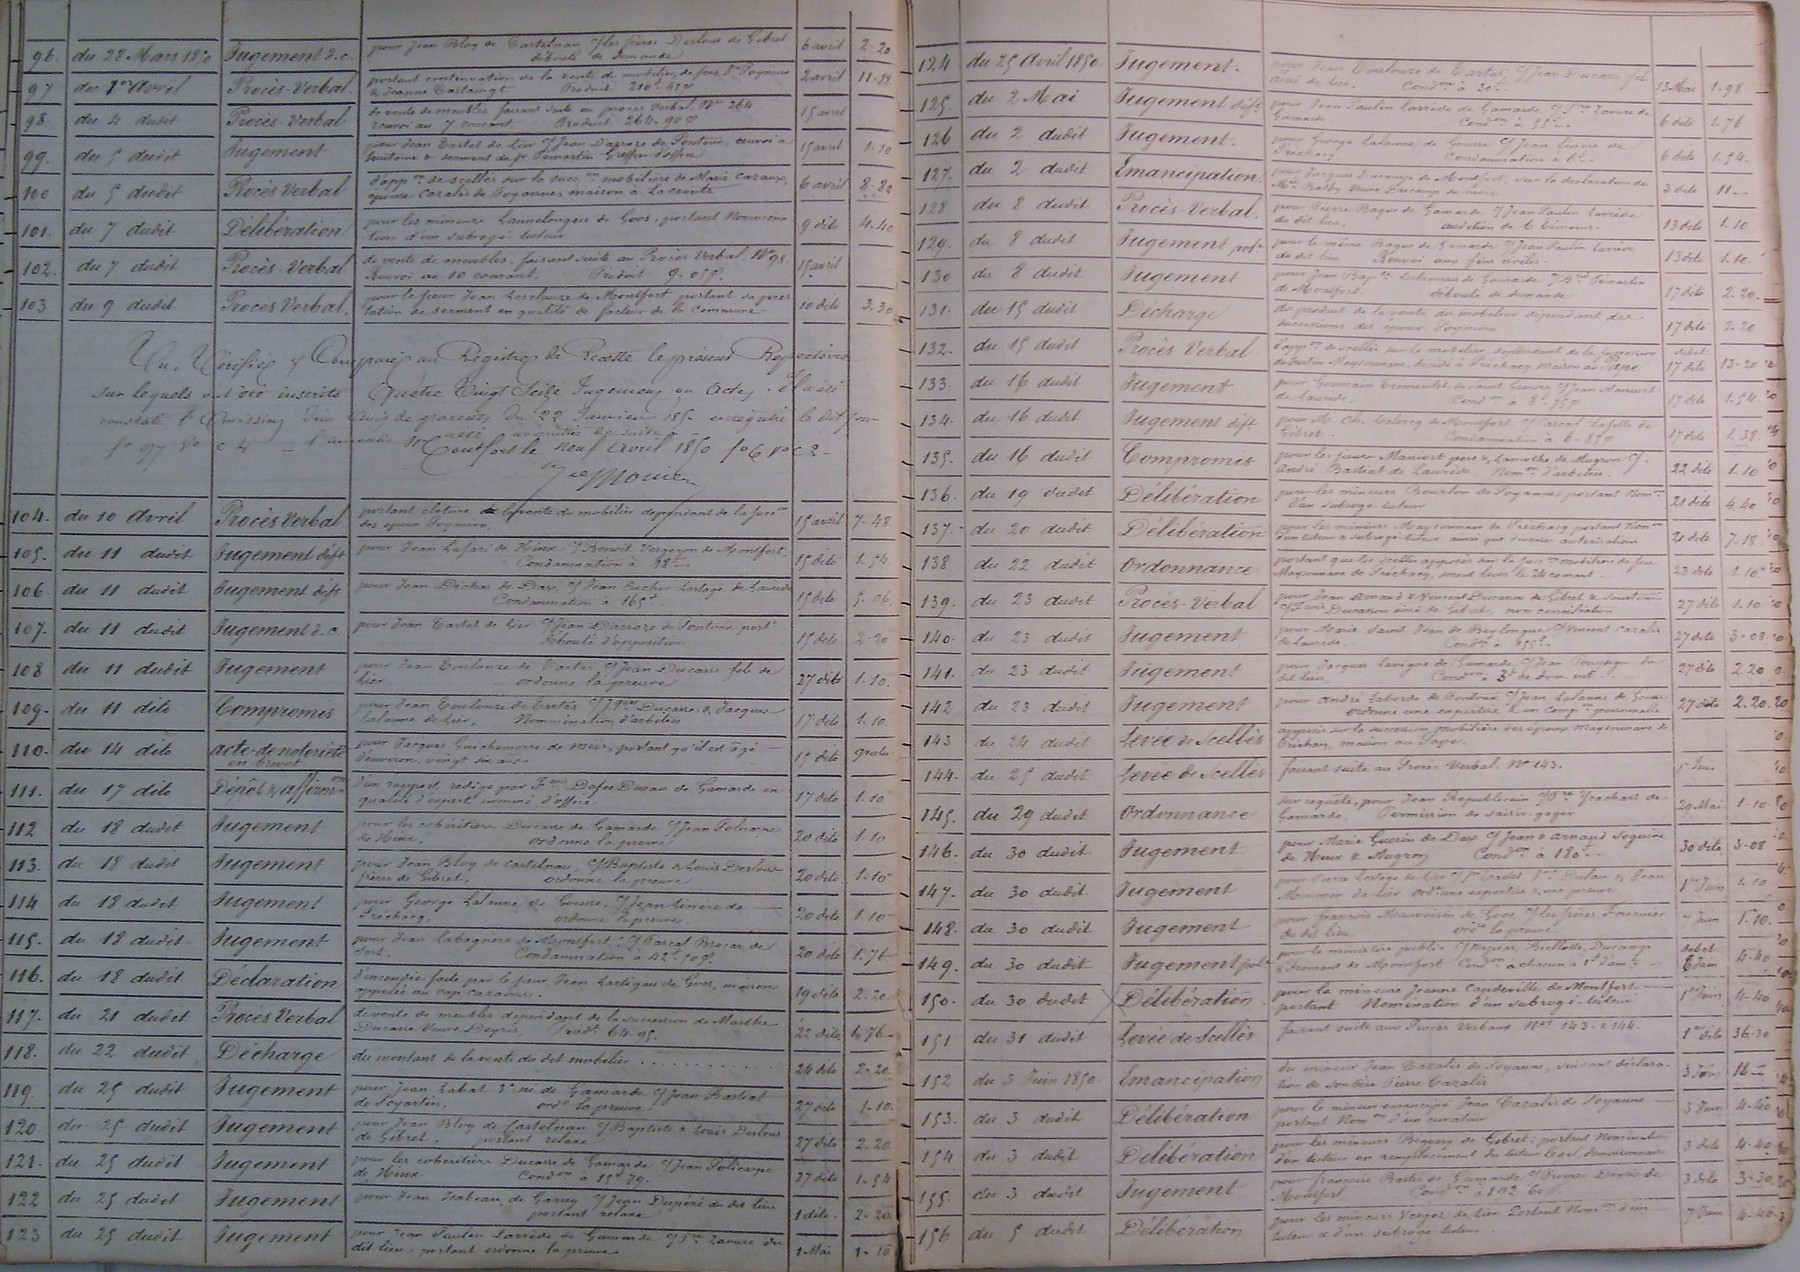 96. du 28 Mars 1850 Jugement d.c. pour Jean Bloy de Castelnau c/ les frères Deslous de Gibret 6 avril 2-20
débouté de demande
97 du 1er Avril Procès-Verbal portant continuation de la vente du mobilier de feus 2 avril 11-
& Jeanne Castaingt Produit 210f 45c
98. du 4 dudit Procès-Verbal de vente de meubles faisant suite au procès Verbal N° 264 15 avril
renvoi au 7 courant. Produit 264-90c
99. du 5 dudit Jugement pour Jean Castet de Lier c/ Jean Darroze de Pontonx, renvoi à 15 avril 1-20
huitaine & serment de fr Témartin Greffier d'office
100 du 5 dudit Procès Verbal d'appon de scellés sur la succon mobilière de Marie Cazaux, 6 avril 8-80
épouse Cazalis de Poyannes maison à Lacroute
101. du 7 dudit Délibération pour les mineurs Lannelongue de Goos, portant Nomina 9 dito 4-40
tion d'un subrogé-tuteur
102. du 7 dudit Procès-Verbal de vente de meubles, faisant suite au Procès Verbal N° 98. 15 avril
Renvoi au 10 courant. Produit 9-05c.
103 du 9 dudit Procès Verbal. pour le sieur Jean de Montfort portant sa pres 10 dito 3-30
tation de serment en qualité de facteur de la commune
Vu, Vérifié & Comparé au Registre de Recette le présent Répertoire
sur lequel ont été inscrits Quatre Vingt Seize Jugemens ou Actes. Il a été
constaté l'omission d'un du 22 Janvier 185 enregistré le dit jour
fo 97 Vo c 4 l'amende a été acquittée de suite.
Montfort le Neuf Avril 1850 fo 6 Vo c 2
104. du 10 Avril Procès Verbal portant cloture de la vente du mobilier dépendant de la succon 15 avril 7-48
des époux Poymiro,
105. du 11 dudit Jugement déft pour Jean Lafari de Hinx c/ Benoit de Montfort. 15 dito 1-54
Condamnation à 38f
106. du 11 dudit Jugement déft pour Jean Déchas de Dax, c/ Jean Lestage de Laurède 15 dito 5-06
Condamnation à 165f
107. du 11 dudit Jugement d.c. pour Jean Castet de Lier c/ Jean Darroze de Pontonx portt 15 dito 2-20
débouté d'opposition
108 du 11 dudit Jugement pour Jean Toulouze de Cartas c/ Jean Ducasse fils de 27 dito 1-10.
Lier ordonne la preuve
109- du 11 dito Compromis pour Jean Toulouze de Cartas c/ Ducasse & Jacques 17 dito 1-10
Lalanne de Lier, Nomination d'arbitres
110- du 14 dito acte de notoriété pour Jacques Guichemerre de , portant qu'il est âgé 15 dito gratis
en brevet d'environ, vingt six ans
111. du 17 dito Dépôt & affirmon d'un rapport, rédigé par Dufos Durau de Gamarde en 17 dito 1-10
qualité d'expert, nommé d'office
112 du 18 dudit Jugement pour les cohéritiers Ducasse de Gamarde c/ Jean Policarpe 20 dito 1-10
de Hinx, ordonne la preuve
113. du 18 dudit Jugement pour Jean Bloy de Castelnau, c/ Baptiste & Louis Deslous 20 dito 1-10
frères de Gibret, ordonne la preuve
114 du 18 dudit Jugement pour George Lalanne de Gousse, c/ Jean Linère de 20 dito 1-10
Préchacq. ordonne la preuve
115. du 18 dudit Jugement pour Jean Labaguère de Montfort, c/ Pascal Brocas de 20 dito 1-76
Condamnation à 42f 50c
116. du 18 dudit Déclaration d'incendie faite par le sieur Jean Lartigau de Goos, maison 19 dito 2-20
appelée au cap cazaux.
117. du 21 dudit Procès Verbal de vente de meubles dépendant de la succession de Marthe 22 dito 4-76
Ducasse Veuve Deyris. Prodt 64-95.
118. du 22 dudit Décharge du montant de la vente du dit mobilier . . . . . . . . . . 24 dito 2-20
119 du 25 dudit Jugement pour Jean Labat 2me né de Gamarde c/ Jean Bastiat 27 dito 1-10.
de Poyartin, orde la preuve
120 du 25 dudit Jugement pour Jean Bloy de Castelnau c/ Baptiste & Louis Deslous 27 dito 2-20
de Gibret, portant relaxe
121. du 25 dudit Jugement pour les cohéritiers Ducasse de Gamarde c/ Jean Policarpe 27 dito 1-54
de Hinx Condon à 15f 79.
122 du 25 dudit Jugement pour Jean Isabeau de Garrey c/ Jean Dupéré du dit lieu 1 dito 2-20
portant relaxe
123 du 25 dudit Jugement pour Jean Paulin Larrède de Gamarde c/ Zavure du 1 Mai 1-10
dit lieu, portant ordonne la preuve
124 du 25 Avril 1850. Jugement. pour Jean Toulouze de Cartas, c/ Jean Ducasse fils 13 Mai 1-98
ainé de Lier. Condon à 30f
125. du 2 Mai Jugement déft. pour Jean Paulin Larrède de Gamarde c/ Zavure de 6 dito 1-76
Gamarde Condon à 55f
126 du 2 dudit Jugement. pour George Lalanne de Gousse c/ Jean Linère de 6 dito 1-54.
Préchacq. Condamnation à 6f
127. du 2 dudit Emancipation. pour Jacques Ducamp de Montfort, sur la déclaration de 3 dito 11-
Veuve Ducamp sa mère
128 du 8 dudit Procès-Verbal. pour Pierre Bagus de Gamarde c/ Jean Paulin Larrède 13 dito 1.10
du dit lieu. audition de 6 témoins.
129. du 8 dudit Jugement pour le même Bagus de Gamarde c/ Jean Paulin Larrède 13 dito 1.10
du dit lieu Renvoi aux fins civiles
130 du 8 dudit Jugement pour Jean Bapte de Gamarde c/ Bd Témartin 17 dito 2.20.
de Montfort. débouté de demande
131. du 15 dudit Décharge du produit de la vente du mobilier dépendant des 17 dito 2-20
successions des époux Poymiro
132. du 15 dudit Procès Verbal d'appon de scellés sur le mobilier dépendant de la succession débet
de Maysonnave, décédé à Préchacq maison au Pape 17 dito 13-20
133. du 16 dudit Jugement pour Germain Trémontet de Saint Geours c/ Jean Maniort 17 dito 1.54.
de Laurède. Condon à 8f 75c
134. du 16 dudit Jugement déft pour M. Ch. de Montfort, c/ Pascal Lafitte de 17 dito 1-38.
Gibret. Condamnation à 6-85c
135. du 16 dudit Compromis pour les sieurs Maniort père & Lamothe de Mugron c/ 22 dito 1.10
André Bastiat de Laurède, Nomon d'arbitres.
136. du 19 dudit Délibération pour les mineurs Bourdon de Poyanne portant Nomon 21 dito 4.40
d'un subrogé-tuteur
137- du 20 dudit Délibération pour les mineurs Maysonnave de Préchacq portant Nomon 21 dito 7-18
d'un tuteur & subrogé-tuteur ainsi que diverses autorisations
138 du 22 dudit Ordonnance portant que les scellés apposés sur la succon mobilière de feue 23 dito 1.10
Maysonnave de Préchacq, seront levés le 24 courant
139. du 23 dudit Procès-Verbal pour Jean Arnaud & Vincent Ducasse de Gibret & Jourdain 27 dito 1-10
c/ Jean Ducasse ainé de Gibret, non conciliation
140. du 23 dudit Jugement pour Marie Saint Jean de Baylongue c/ Vincent Cazalis 27 dito 3-08
de Laurède. Condon à 255f
141. du 23 dudit Jugement pour Jacques Lavigne de Gamarde c/ Jean du 27 dito 2.20
dit lieu, Condon à 3f de dom. int.
142 du 23 dudit Jugement pour André Laborde de Pontonx c/ Jean Lalanne de Gousse 27 dito 2.20.
ordonne une expertise & un compon personnelle
143 du 24 dudit Levée de Scellés apposés sur la succession mobilière des époux Maysonnave de
Préchacq, maison au Pape.
144. du 25 dudit Levée de Scellés faisant suite au Procès Verbal. N° 143. 5 Juin
145. du 29 dudit Ordonnance sur requête, pour Jean Républicain c/ Yrachart de 29 Mai 1-10
Gamarde, Permission de saisir gager
146. du 30 dudit Jugement pour Marie Guérin de Dax c/ Jean & Arnaud Seguine 30 dito 3-08
de Hinx & Mugron Condon à 180f
147. du 30 dudit Jugement pour Pierre Lestage de Lier c/ Dulau & Jean 1er Juin 1-10
de Lier ordt une expertise & une preuve
148. du 30 dudit Jugement pour François Mauvoisin de Goos, c/ les frères Fournier 7 Juin 1-10.
du dit lieu orde la preuve
149. du 30 dudit Jugement pole pour le ministère public c/ Biellotte, Ducamp débet 4-40
& Fromont de Montfort Condon à chacun à 1f d'amde 6 Juin
150. du 30 dudit Délibération pour la mineure Jeanne Capdeville de Montfort 1er Juin 4-40
portant Nomination d'un subrogé-tuteur
151 du 31 dudit Levée de Scellés faisant suite aux Procès Verbaux Nos 143 & 144. 1er dito 36-30
152 du 3 Juin 1850. Emancipation du mineur Jean Cazalis de Poyanne, suivant déclara- 3 Juin 11-
tion de son père Pierre Cazalis
153. du 3 dudit Délibération pour le mineur émancipé Jean Cazalis de Poyanne 3 Juin 4-40
portant Nomon d'un curateur
154 du 3 dudit Délibération pour les mineurs de Gibret, portant Nomination 3 dito 4-40
d'un tuteur en remplacement du tuteur légal, démissionnaire
155. du 3 dudit Jugement pour françoise Bastet de Gamarde c/ Deyris de 3 dito 3-30
Montfort. Condon à 192 60c.
156 du 5 dudit Délibération pour les mineurs Verges de Lier Portant Nomon d'un 7 Juin 4-40
tuteur & d'un subrogé-tuteur